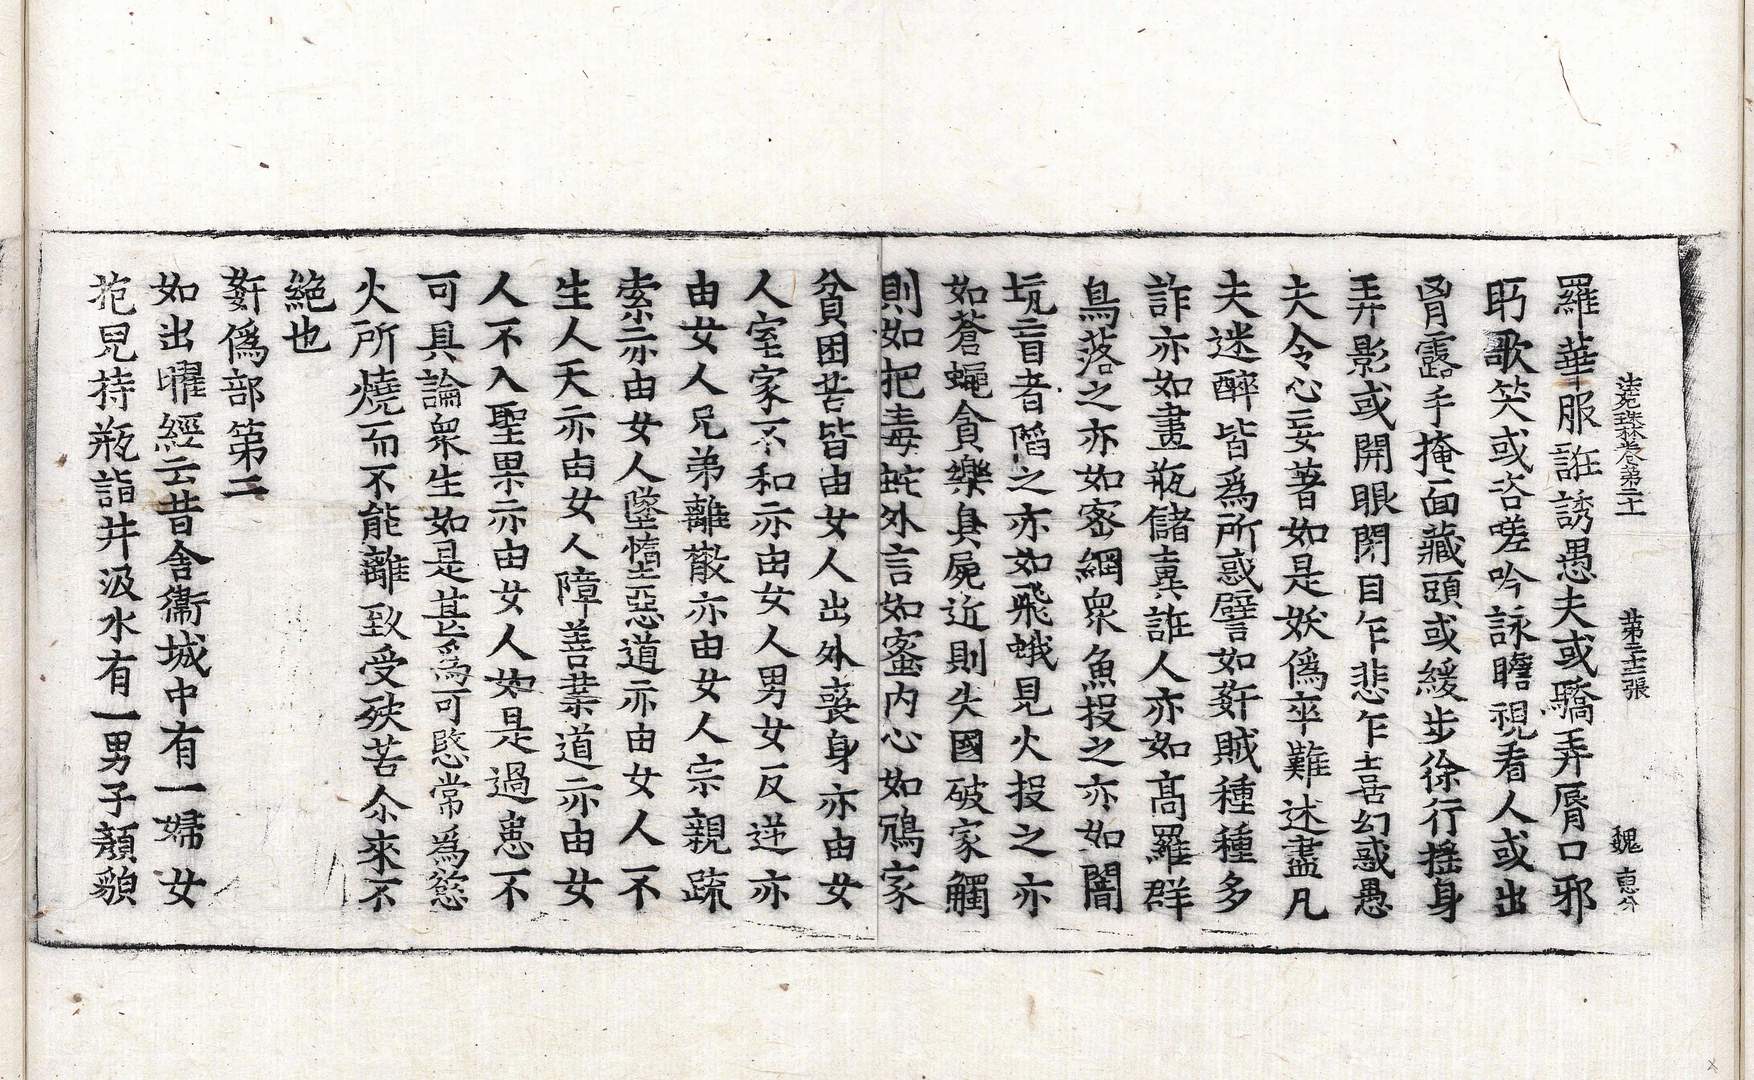 法苑珠林卷第二十一 第二十三張 魏惠
羅華服誑誘愚夫或驕弄脣口邪
眄歌笑或咨嗟吟詠瞻視看人或出
胷露手掩面藏頭或緩步徐行摇身
弄影或開眼閉目乍悲乍喜幻惑愚
夫令心妄著如是妖僞卒難述盡凡
夫迷醉皆爲所惑譬如姧賊種種多
詐亦如畫瓶儲糞誑人亦如高羅群
鳥落之亦如密網衆魚投之亦如闇
坑盲者䧟之亦如飛蛾見火投之亦
如蒼蠅貪樂臭屍近則失國破家觸
則如把毒蛇外言如蜜内心如鴆家
貧困苦皆由女人出外喪身亦由女
人室家不和亦由女人男女反逆亦
由女人兄弟離散亦由女人宗親疏
索亦由女人墜墮惡道亦由女人不
生人天亦由女人障善業道亦由女
人不入聖果亦由女人如是過患不
可具論衆生如是甚爲可愍常爲慾
火所燒而不能離致受殃苦尒來不
絶也
姧僞部第二
如出曜經云昔舍衞城中有一婦女
抱兒持瓶詣井汲水有一男子顔貌